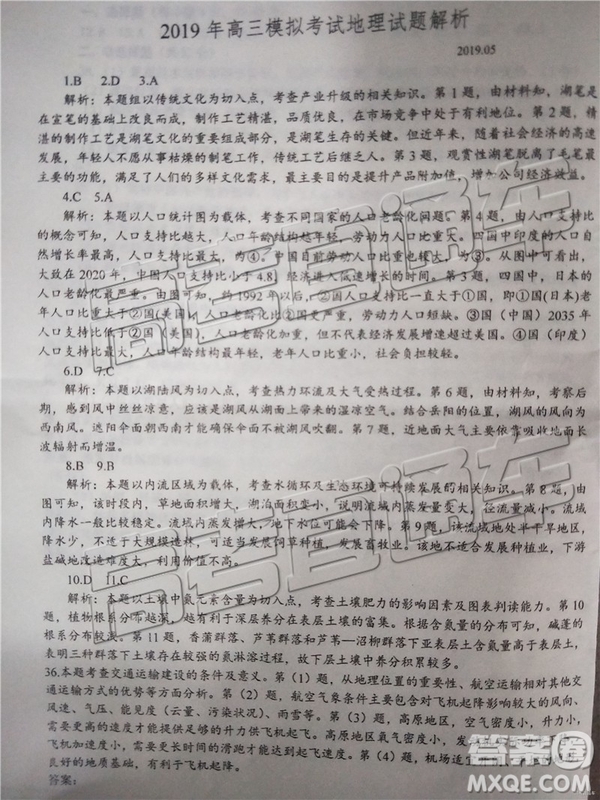 2019 年高三模拟考试地理试题解析
2019.05
1.B 2.D 3.A
解析：本题组以传统文化为切入点，考查产业升级的相关知识。第 1 题，由材料知，湖笔是
在宣笔的基础上改良而成，制作工艺精湛，品质优良，在市场竞争中处于有利地位。第 2 题，精
湛的制作工艺是湖笔文化的重要组成部分，是湖笔生存的关键。但近年来，随着社会经济的高速
发展，年轻人不愿从事枯燥的制笔工作，传统工艺后继乏人。第 3 题，观赏性湖笔脱离了毛笔最
主要的功能，满足了人们的多样文化需求，最主要是提升产品附加值，增加公司经济效益。
4.C 5.A
解析：本题以人口统计图为载体，考查不同国家的人口老龄化问题。第 4 题，由人口支持比
的概念可知，人口支持比越大，人口年龄结构越年轻，劳动力人口比重大。四国中印度的人口自
然增长率最高，人口支持比最大，为④。中国目前劳动力人口比重也较大，为③。从图中可看出，
大致在 2020 年，中国人口支持比小于 4.8，经济进入低速增长的时间。第 3 题，四国中，日本的
人口老龄化最严重。由图可知，约 1992 年以后，②国人口支持比一直大于①国，即①国(日本)老
年人口比重大于②国(美国)，人口老龄化比②国更严重，劳动力人口短缺。③国（中国）2035 年
人口支持比小于②国（美国），人口老龄化加重，但不代表经济发展增速超过美国。④国（印度）
人口支持比最大，人口年龄结构最年轻，老年人口比重小，社会负担较轻。
6.D 7.C
解析：本题以湖陆风为切入点，考查热力环流及大气受热过程。第 6 题，由材料知，考察后
期，感到风中丝丝凉意，应该是湖风由湖面上带来的湿凉空气。结合岳阳的位置，湖风的风向为
西南风。遮阳伞面朝西南才能确保伞面不被湖风吹翻。第 7 题，近地面大气主要依靠吸收地面长
波辐射而增温。
8.B 9.B
解析：本题以内流区域为载体，考查水循环及生态环境可持续发展的相关知识。第 8 题，由
图可知，该时段内，草地面积增大，湖泊面积变小，说明流域内蒸发量变大，径流量减小。流域
内降水一般比较稳定。流域内蒸发量增大，地下水位可能会下降。第 9 题，该流域地处半干旱地区，
降水少，不适于大规模造林，可适当发展饲草种植，发展畜牧业。该地不适合发展种植业，下游
盐碱地改造难度大，利用价值不高。
10.D 11.C
解析：本题以土壤中氮元素含量为切入点，考查土壤肥力的影响因素及图表判读能力。第 10
题，植物根系分布越深，越有利于深层养分在表层土壤的富集。根据含氮量的分布可知，碱蓬的
根系分布较浅。第 11 题，香蒲群落、芦苇群落和芦苇—沼柳群落下亚表层土含氮量高于表层土，
表明三种群落下土壤存在较强的氮淋溶过程，故下层土壤中养分积累较多。
36.本题考查交通运输建设的条件及意义。第（1）题，从过境的重要性、航空运输相对其他交
通运输方式的优势等方面分析。第（2）题，航空气象条件主要包含对飞机起降影响较大的风向、
风速、气压、能见度（云量、污染状况）、雨雪等。第（3）题，高原地区，空气密度小，升力小，
需要更高的速度才能提供足够的升力供飞机起飞。高原地区，空气含氧量小，发
飞机加速度小，需要更长时间的滑跑才能达到起飞速度。第（4）题，机场近
良好的地质基础，有利于飞机起降。
答案：
高考直通车
高考直通车
高考直通车
答案圈
MXQE.COM